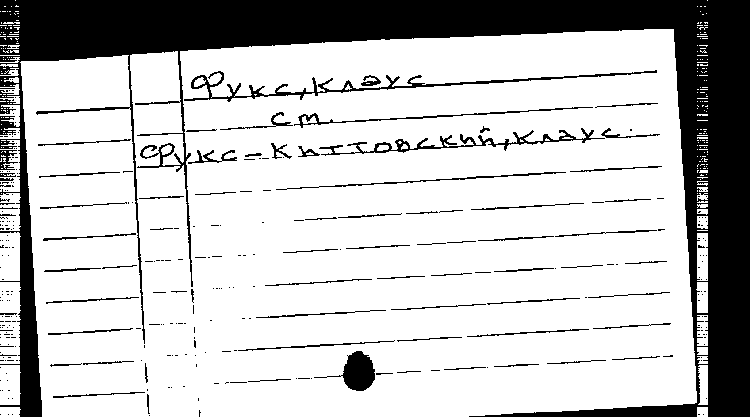 Фукс, Клаус
см.
Фукс-Киттовский, Клаус.